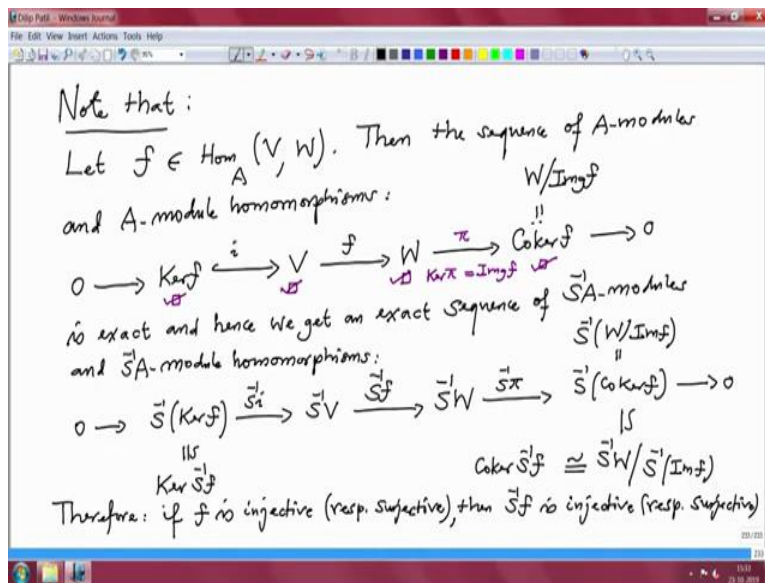 Dilip Patil - Windows Journal
File Edit View Insert Actions Tools Help
Note that :
Let f ∈ Hom_A (V, W). Then the sequence of A-modules
and A-module homomorphisms :
W/Imgf
!!
0 → Kerf —i→ V —f→ W —π→ Cokerf → 0
Kerπ = Imgf
is exact and hence we get an exact sequence of S⁻¹A-modules
and S⁻¹A-module homomorphisms :
S⁻¹(W/Imf)
||
0 → S⁻¹(Kerf) —S⁻¹i→ S⁻¹V —S⁻¹f→ S⁻¹W —S⁻¹π→ S⁻¹(Cokerf) → 0
Ker S⁻¹f
Coker S⁻¹f ≅ S⁻¹W/S⁻¹(Imf)
Therefore: if f is injective (resp. surjective), then S⁻¹f is injective (resp. surjective)
233/233
233
15:33